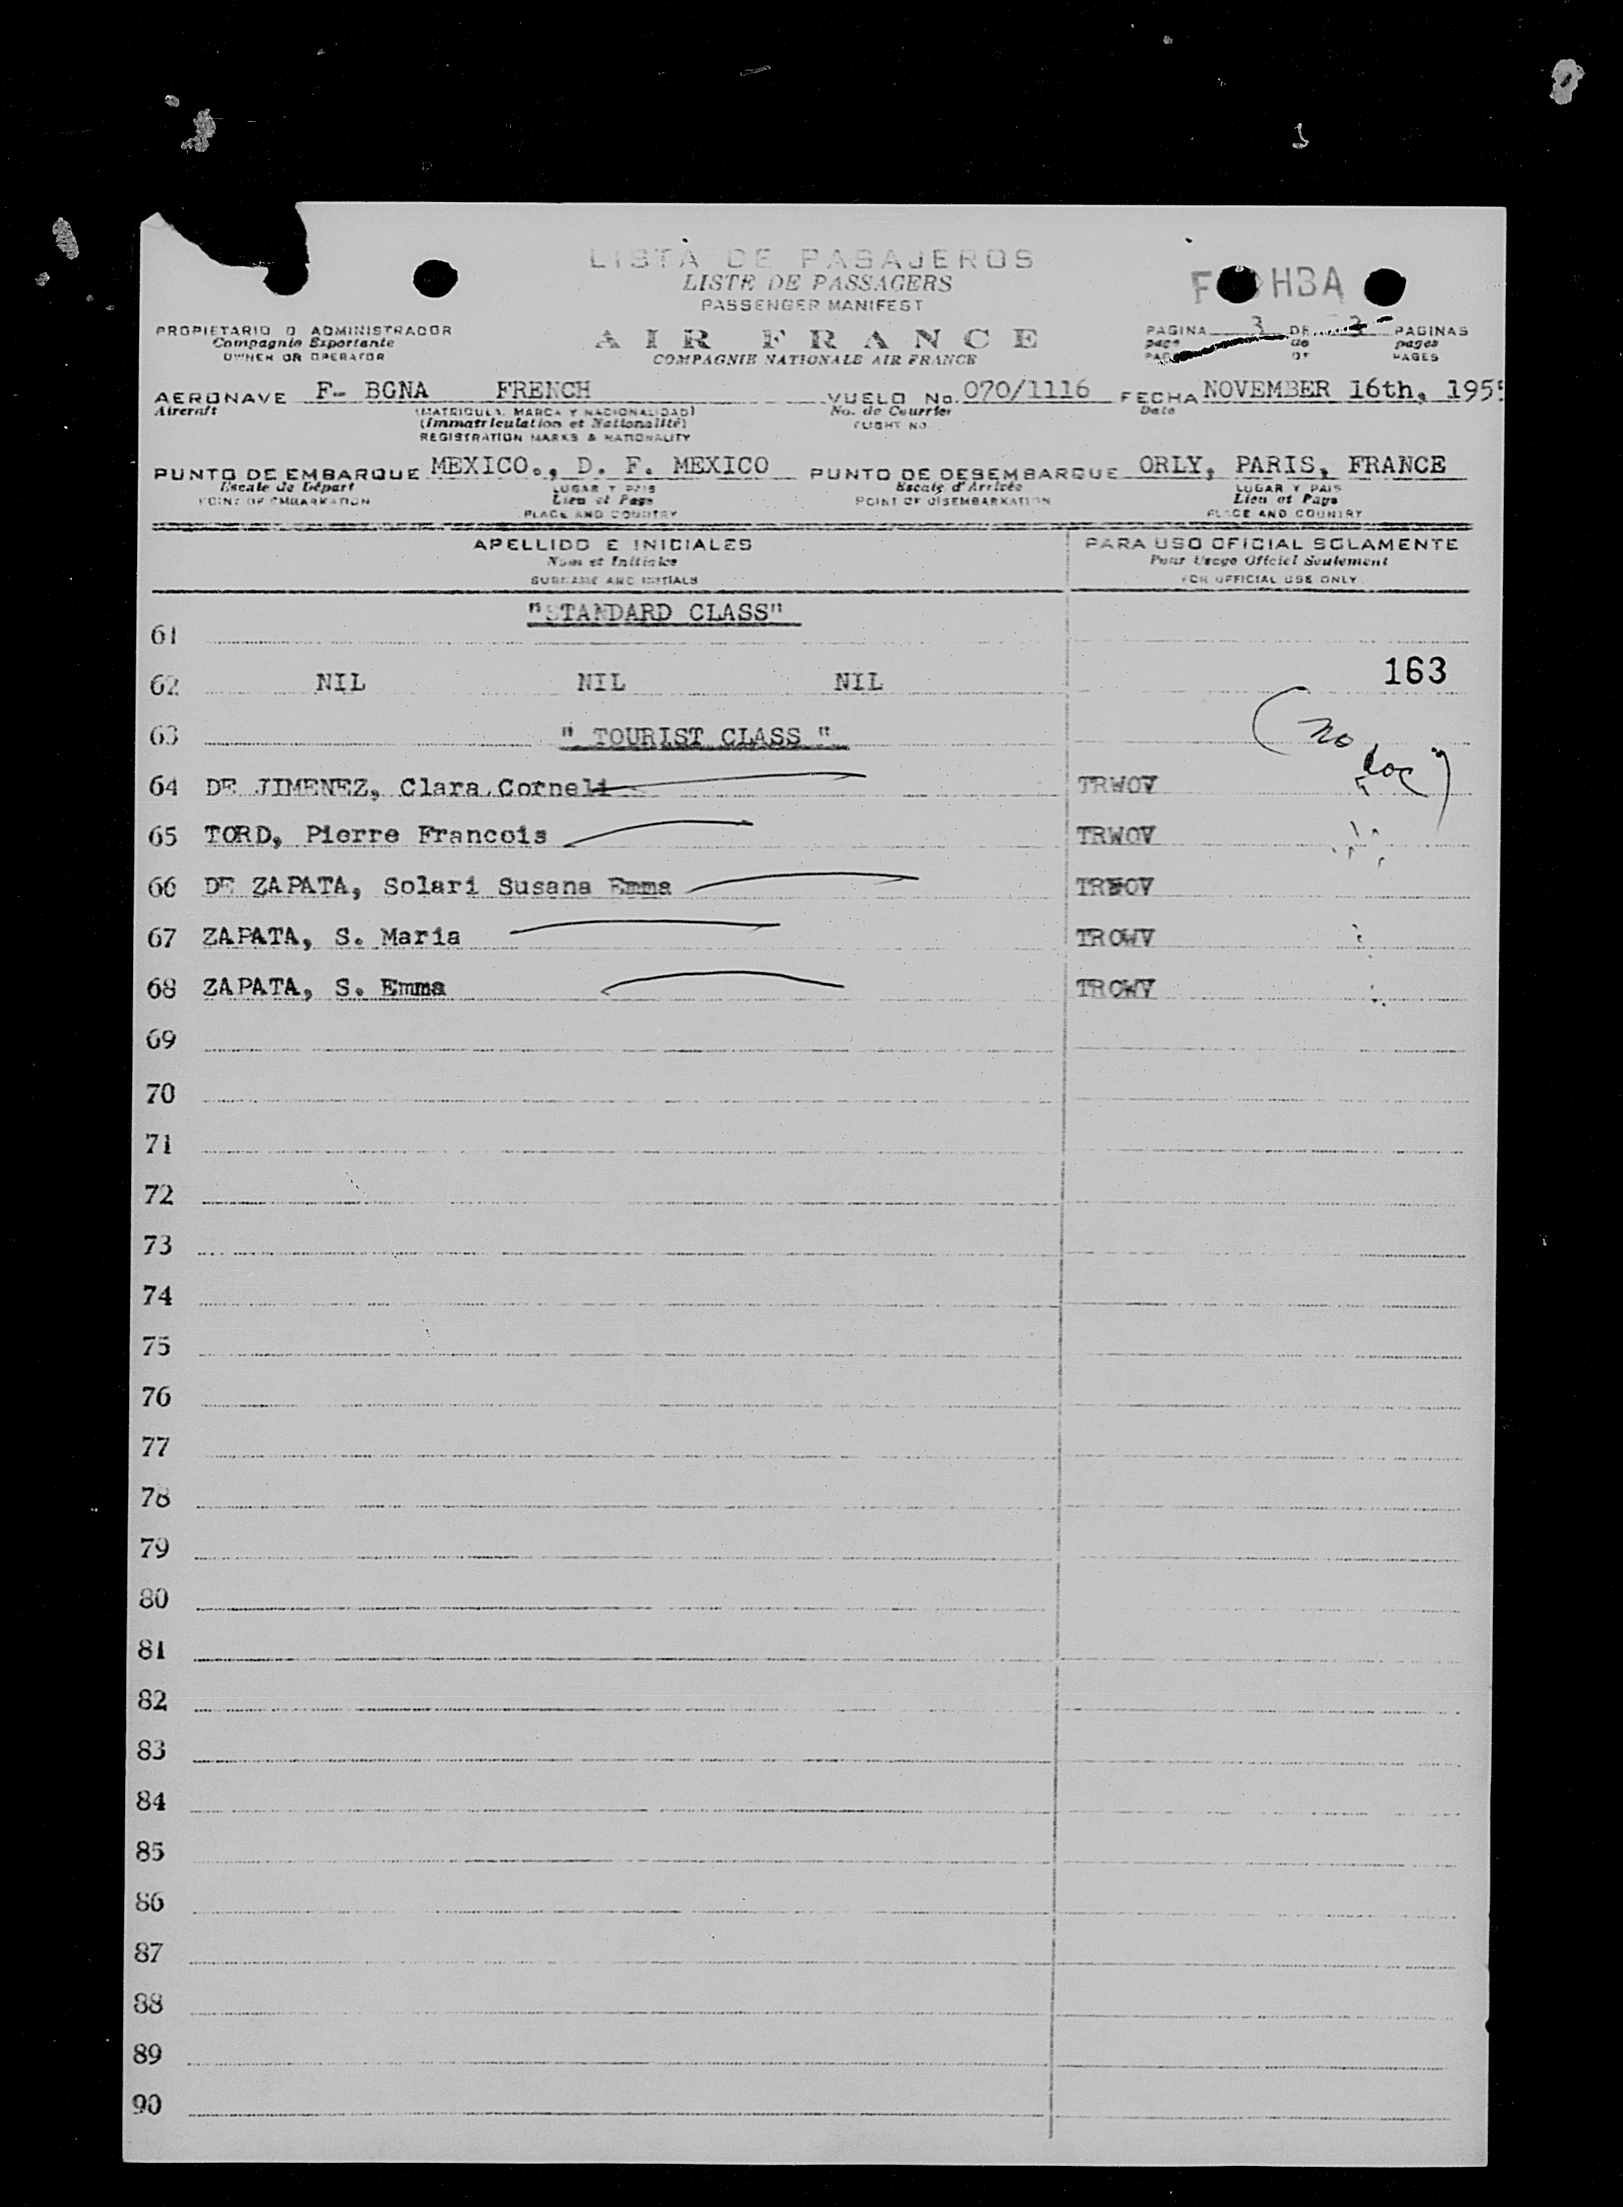 LISTA DE PASAJEROS
LISTE DE PASSAGERS
PASSENGER MANIFEST
HBA
PROPIETARIO O ADMINISTRADOR
Compagnie Exportante
OWNER OR OPERATOR
AIR FRANCE
COMPAGNIE NATIONALE AIR FRANCE
PAGINA 3 DE 3 PAGINAS
page de pages
OF PAGES
AERONAVE F- BGNA FRENCH VUELO No. 070/1116 FECHA NOVEMBER 16th, 195
Aircraft (MATRICULA, MARCA Y NACIONALIDAD) No. de Courrier Date
(Immatriculation et Nationalité) FLIGHT NO
REGISTRATION MARKS & NATIONALITY
PUNTO DE EMBARQUE MEXICO., D. F. MEXICO PUNTO DE DESEMBARQUE ORLY, PARIS, FRANCE
Escale de Départ LUGAR Y PAIS Escale d'Arrivée LUGAR Y PAIS
POINT OF EMBARKATION Lieu et Pays POINT OF DISEMBARKATION Lieu et Pays
PLACE AND COUNTRY PLACE AND COUNTRY
APELLIDO E INICIALES PARA USO OFICIAL SOLAMENTE
Nom et Initiales Pour Usage Officiel Seulement
SURNAME AND INITIALS FOR OFFICIAL USE ONLY
"STANDARD CLASS"
61
62 NIL NIL NIL 163
63 " TOURIST CLASS " (no
64 DE JIMENEZ, Clara Corneli TRWOV doc)
65 TORD, Pierre Francois TRWOV
66 DE ZAPATA, Solari Susana Emma TRWOV
67 ZAPATA, S. Maria TROWV
68 ZAPATA, S. Emma TROWV
69
70
71
72
73
74
75
76
77
78
79
80
81
82
83
84
85
86
87
88
89
90